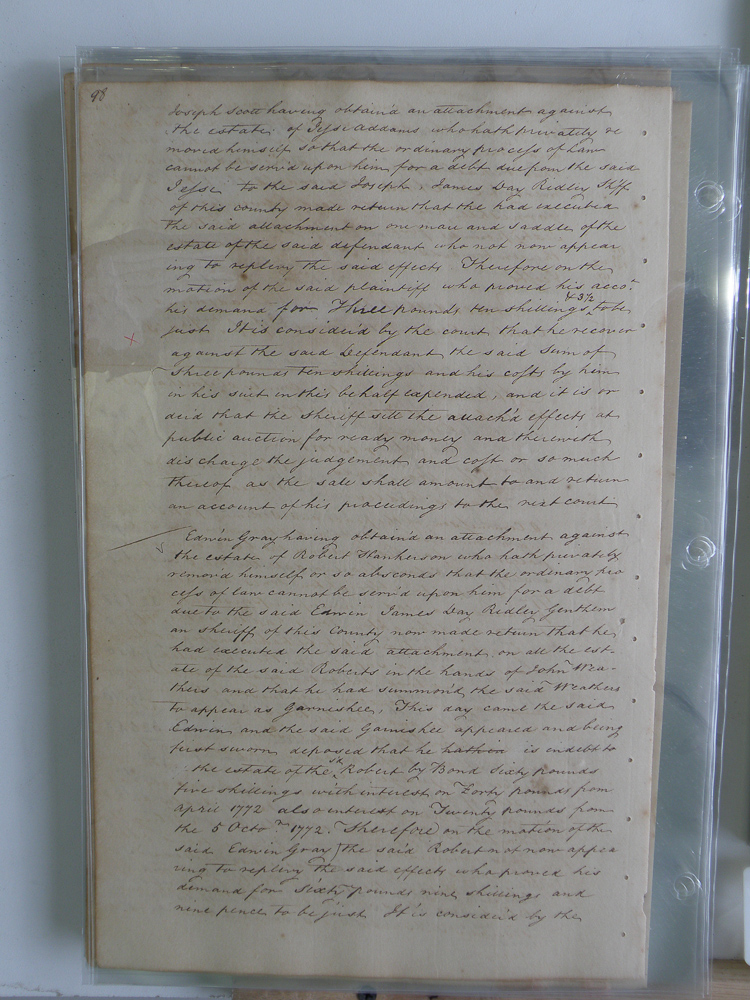 98
Joseph Scott having obtain'd an attachment against
the estate of Jesse Addams who hath privately re
moved himself so that the ordinary process of Law
cannot be serv'd upon him for a debt due from the said
Jesse to the said Joseph, James Day Ridley Shff
of this county made return that the had executed
the said attachment on one mare and saddle of the
estate of the said defendant who not now appear
ing to replevy the said effects. Therefore on the
motion of the said plaintiff who proved his acco.t
& 3½
his demand for Three pounds ten shillings to be
just It is consider'd by the court that he recover
against the said Defendant the said Sum of
Three pounds ten shillings and his costs by him
in his suit in this behalf expended, and it is or
derd that the Sheriff sell the attach'd effects at
public auction for ready money and therewith
discharge the judgement and cost or so much
thereof as the sale shall amount to and return
an account of his proceedings to the next court
Edwin Gray having obtain'd an attachment against
the estate of Robert Hankerson who hath privately
remov'd himself or so absconds that the ordinary pro
cess of law cannot be serv'd upon him for a debt
due to the said Edwin James Day Ridley Gentlem
an sheriff of this County now made return that he
had executed the said attachment on all the est-
ate of the said Roberts in the hands of John Wea-
thers and that he had summon'd the said Weathers
to appear as Garnishee, This day came the said
Edwin and the said Garnishee appeared and being
first sworn deposed that he is endebt to
the estate of the sd Robert by Bond Sixty pounds
five shillings with interest on Forty pounds from
April 1772 also interest on Twenty pounds from
the 5 Octo.r 1772. Therefore on the motion of the
said Edwin Gray the said Robert not now appea
ring to replevy the said effects who proved his
demand for Sixty pounds nine shillings and
nine pence to be just It is consider'd by the